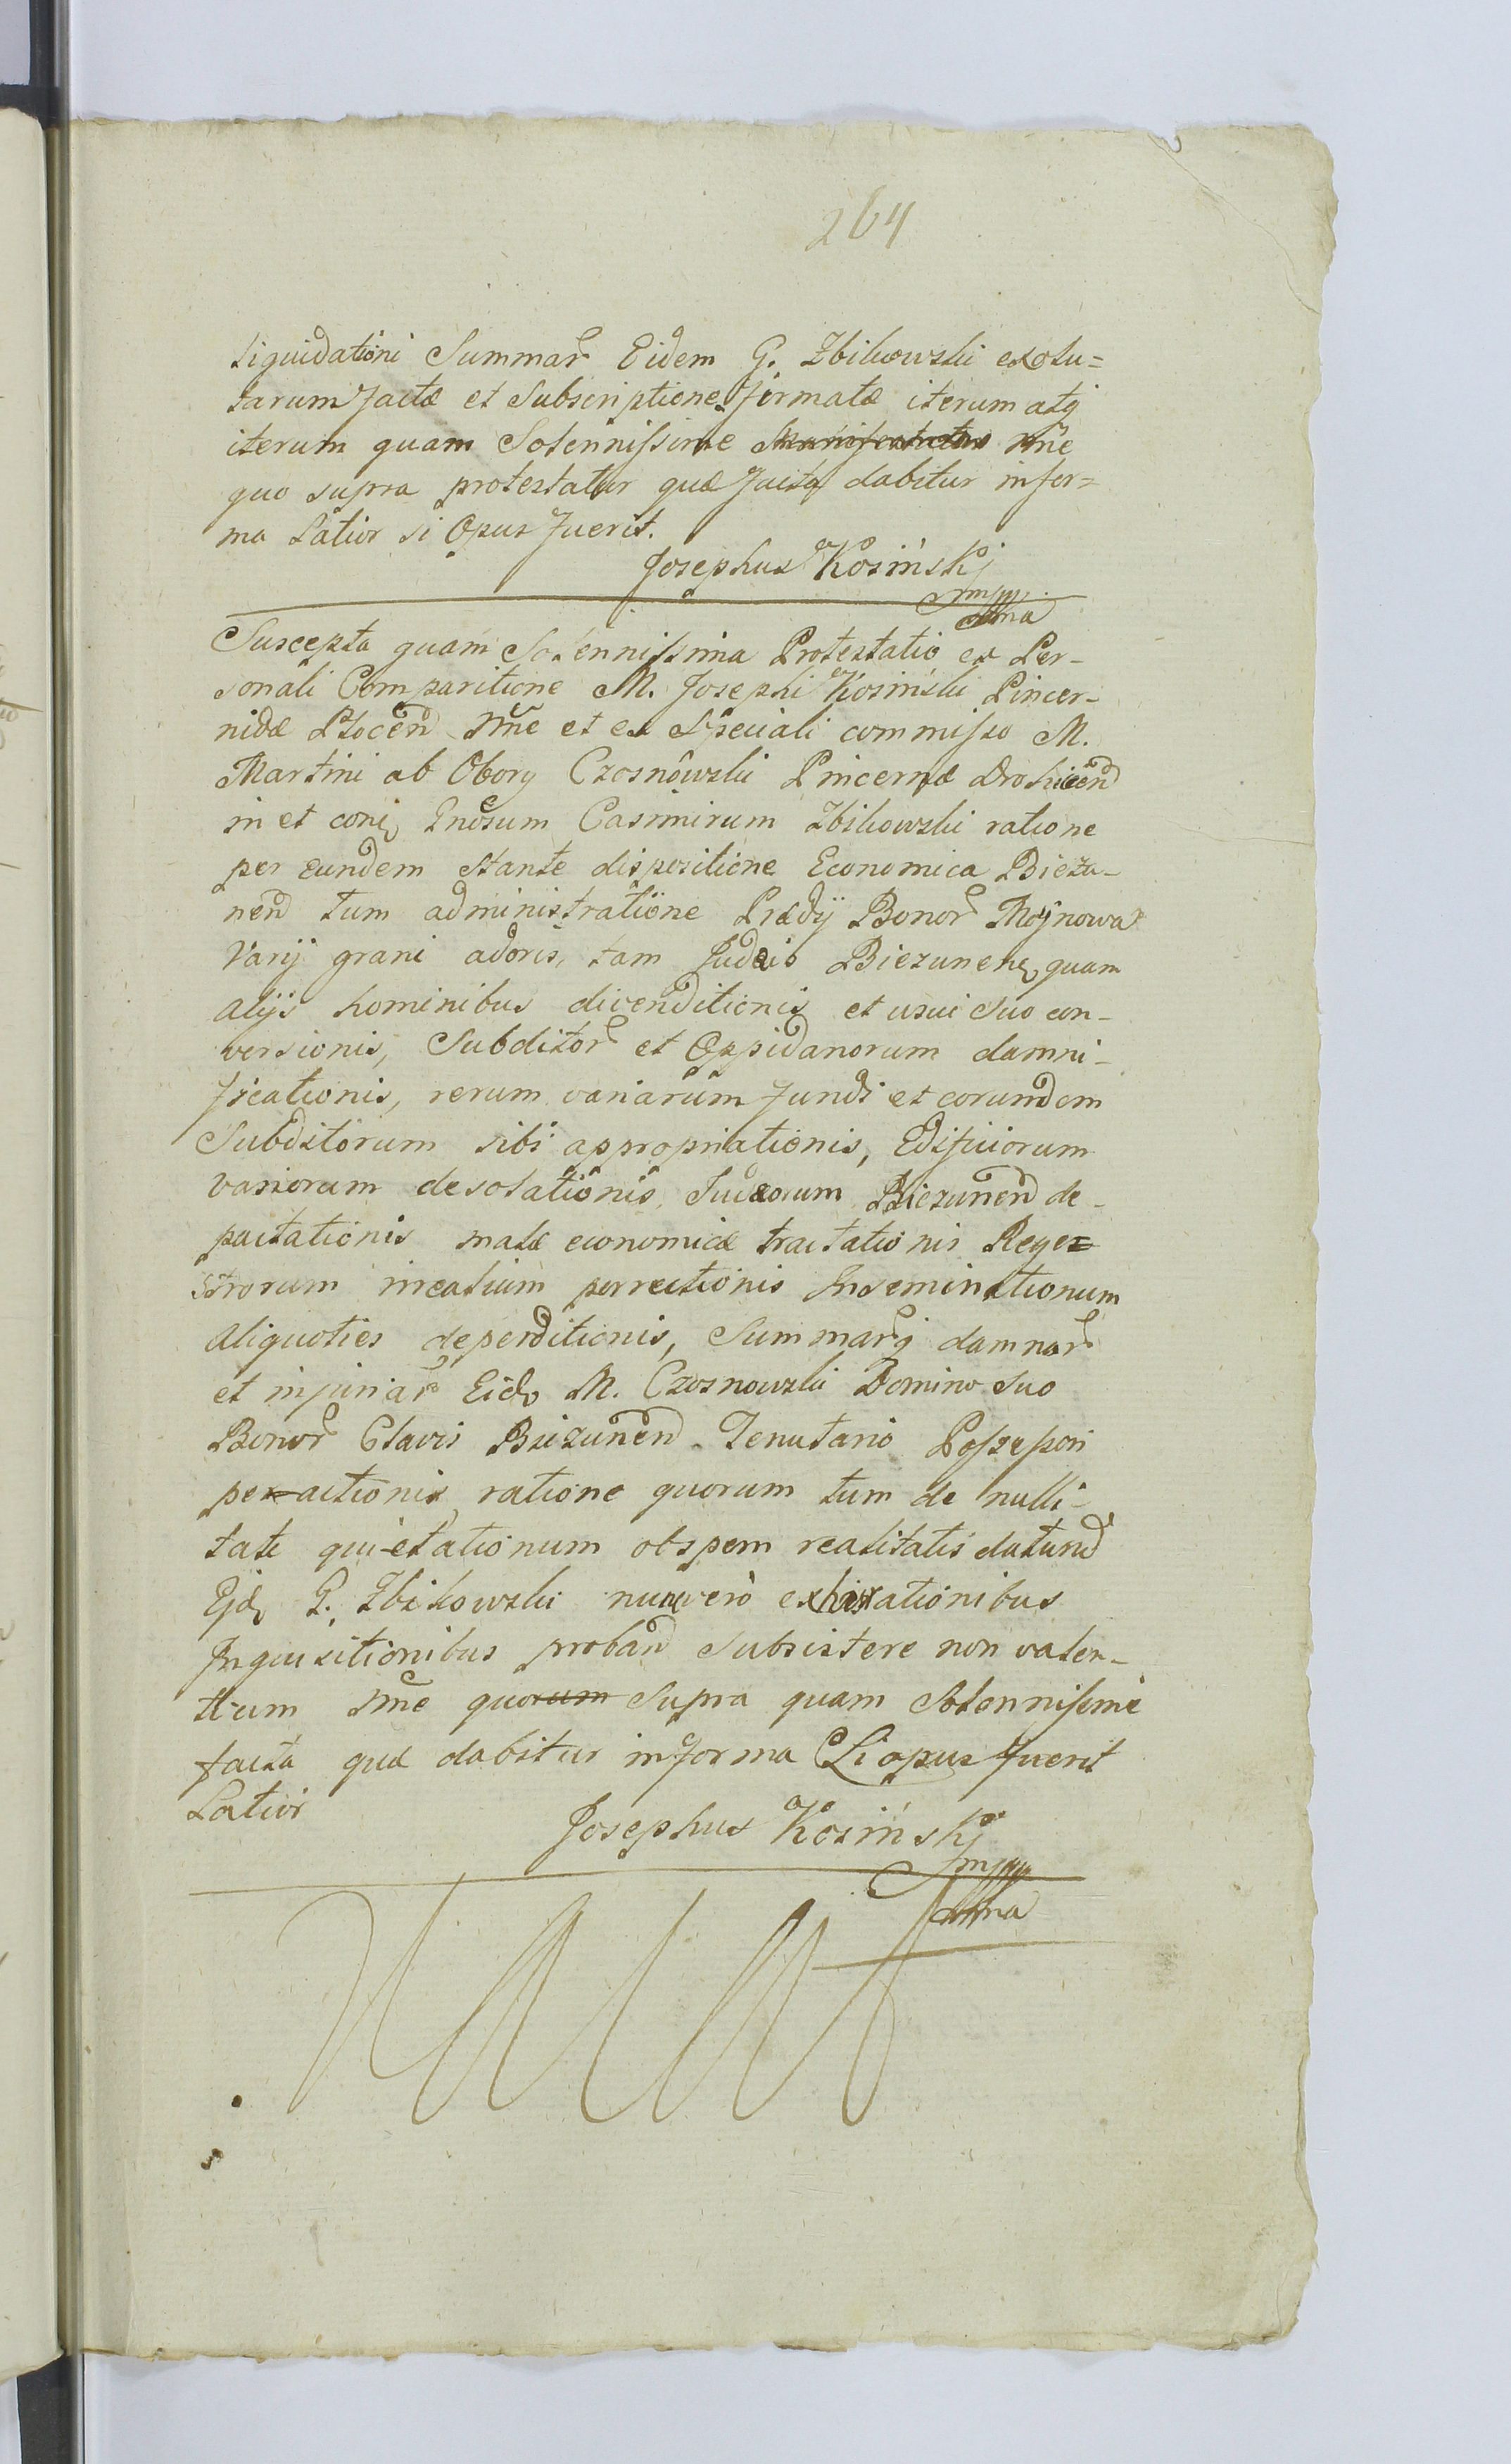 264
liquidationi Summar Eidem G. Zbikowski exolu=
tarum factæ et Subscriptione firmatæ iterum atq
iterum quam Solennissime Manifestatur Nñe
quo supra protestatur quæ facta dabitur infor=
ma Latior si Opus fuerit.
Josephus Kosinskj
mpp
Suscepta quam Solennissima Protestatio ex Per-
sonali Comparitione M. Josephi Kosinski Pincer-
nidæ Plocen Nñe et ex Speciali commisso M.
Martini ab Obory Czosnowski Pincernæ Drohicen
in et con Gnosum Casimirum Zbikowski ratione
per eundem stante dispositione Economica Biezu-
nen tum administratione Prædij Bonor Moynowa
Varij grani adoris, tam Judæis Biezunen quam
Alijs hominibus divenditionis et usui Suo con-
versionis, Subditor et Oppidanorum damni-
ficationis, rerum variarum fundi et eorundem
Subditorum sibi appropriationis, Edificiorum
variorum desolationis Judæorum Biezunen de-
pactationis malæ economicæ tractationis Rege=
strorum incatium porrectionis Inseminationum
Aliquoties deperditionis, Summarq damnor
et injuriar Eid M. Czosnowski Domino Suo
Bonor Clavis Biezunen Tenutario Possessori
peractionis ratione quorum tum de nulli-
tate quietationum ob spem realitatis datarud
Ejd G. Zbikowski nunc verò ex
Inquisitionibus proband Subsistere non valen-
tium Nñe quorum Supra quam Solennissime
facta quæ dabitur in forma Si opus fuerit
Latior
Josephus Kosinskj
mpp